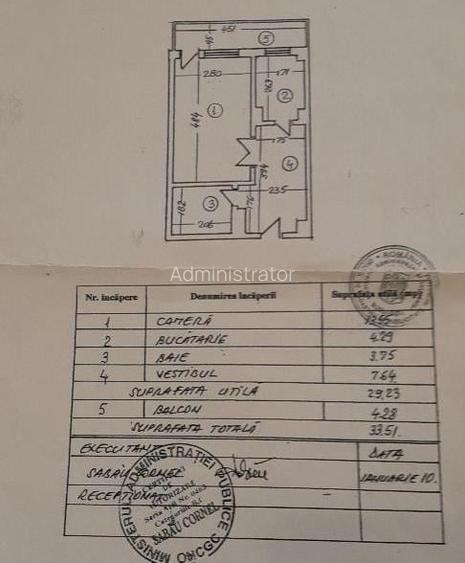 451
95
5
280
171
263
2
1
484
175
394
4
235
3
182
206
76
Administrator
Nr. încăpere Denumirea încăperii Suprafaţa utilă (mp)
1 CAMERĂ 13.55
2 BUCĂTARIE 4.29
3 BAIE 3.75
4 VESTIBUL 7.64
SUPRAFATA UTILĂ 29,23
5 BALCON 4.28
SUPRAFATA TOTALĂ 33.51.
EXECUTANT DATA
SARĂU CORNEL IANUARIE 10.
RECEPŢIONAT –
MINISTERUL ADMINISTRAŢIEI PUBLICE
CERTIFICAT
DE
AUTORIZARE
Seria
Categoria
SARĂU CORNEL
ROMÂNIA